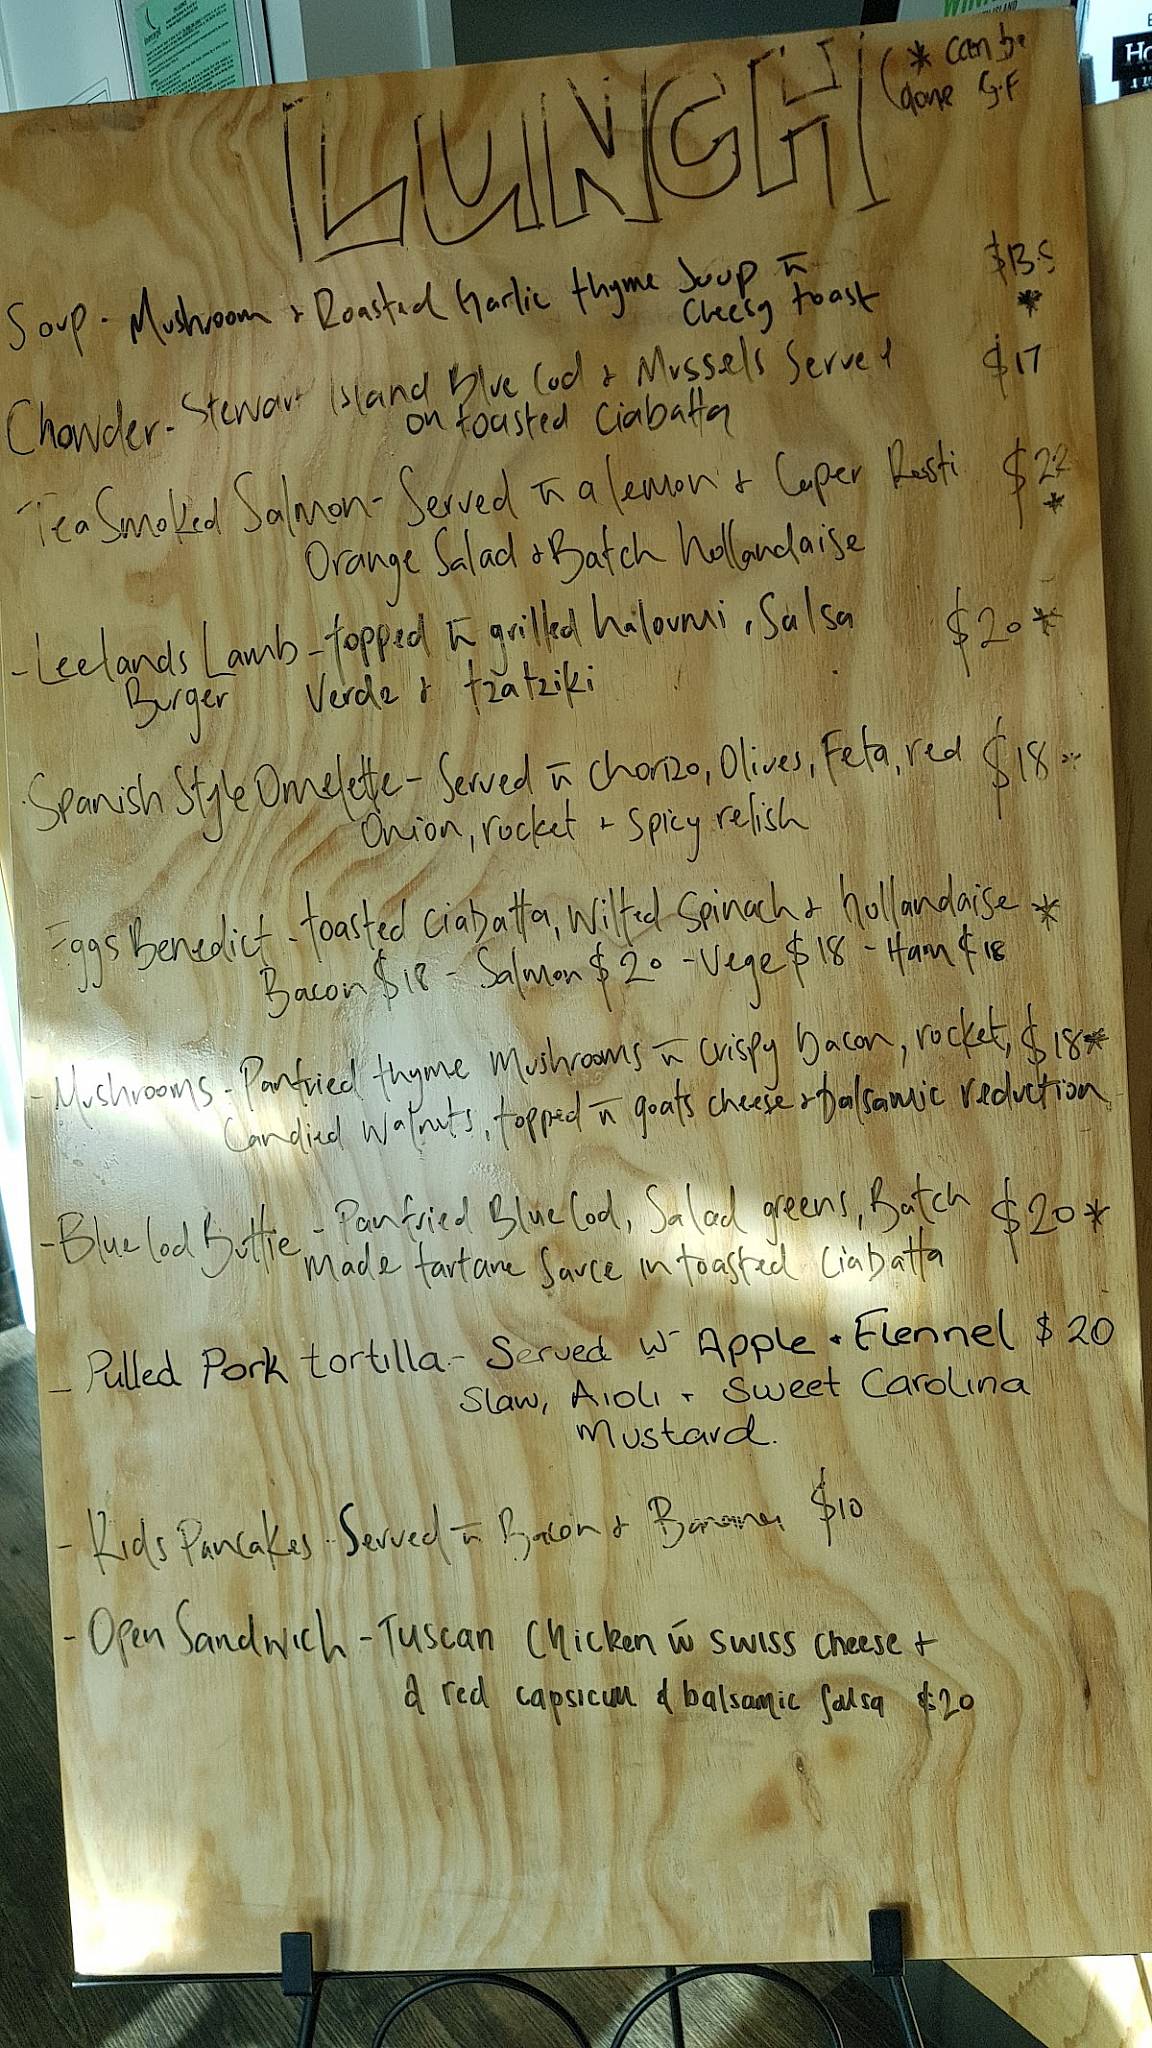 LUNCH
(* can be
done G.F
Soup - Mushroom + Roasted Garlic thyme Soup w̄ $13.5
Cheesy toast *
Chowder - Stewart Island Blue Cod + Mussels Served $17
on toasted Ciabatta
Tea Smoked Salmon - Served w̄ a lemon + Caper Rosti $22
Orange Salad + Batch hollandaise *
- Leelands Lamb - topped w̄ grilled haloumi, Salsa $20 *
Burger Verde + tzatziki
Spanish Style Omelette - Served w̄ Chorizo, Olives, Feta, red $18 *
Onion, rocket + Spicy relish
Eggs Benedict - toasted Ciabatta, Wilted Spinach + hollandaise *
Bacon $18 - Salmon $20 - Vege $18 - Ham $18
- Mushrooms - Panfried thyme Mushrooms w̄ crispy bacon, rocket, $18 *
Candied Walnuts, topped w̄ goats cheese + balsamic reduction
- Blue Cod Buttie - Panfried Blue Cod, Salad greens, Batch $20 *
made tartare Sauce in toasted Ciabatta
- Pulled Pork tortilla - Served w̄ Apple + Flennel $20
Slaw, Aioli + Sweet Carolina
Mustard.
- Kids Pancakes - Served w̄ Bacon + Banana $10
- Open Sandwich - Tuscan Chicken w̄ swiss cheese +
& red capsicum & balsamic salsa $20